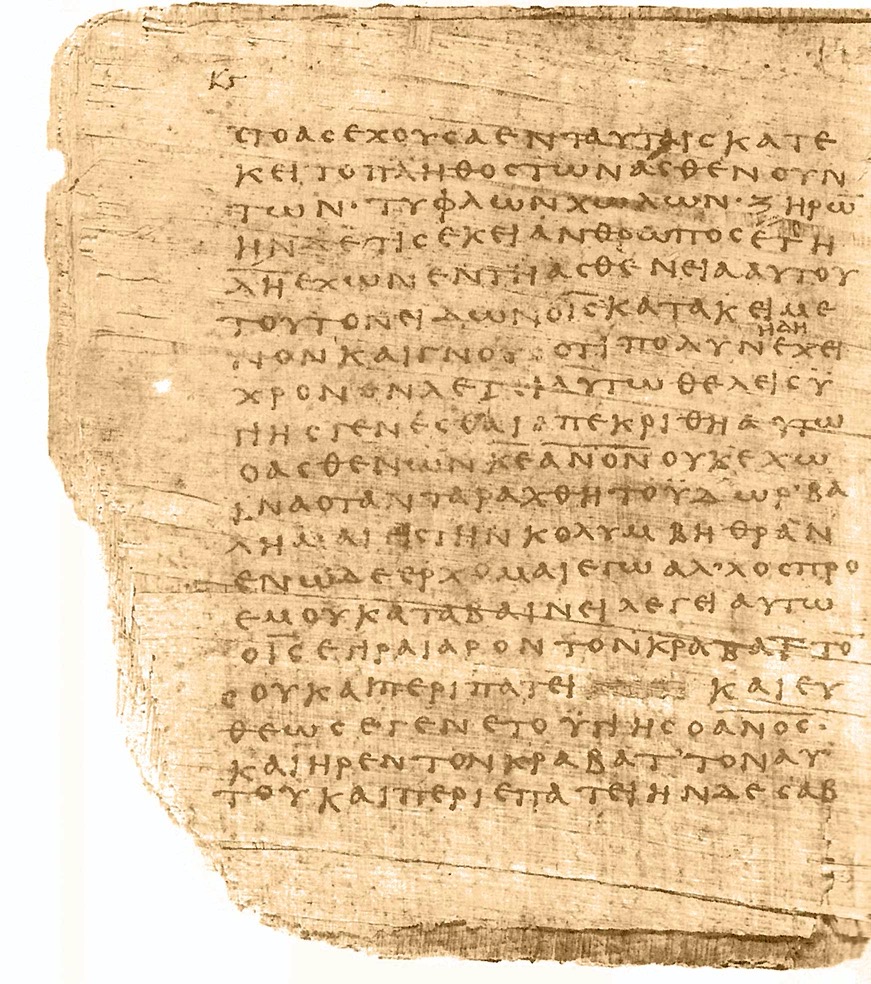 Κϛ
ϹΤΟΑϹΕΧΟΥϹΑΕΝΤΑΥΤΑΙϹΚΑΤΕ
ΚΕΙΤΟΠΛΗΘΟϹΤΩΝΑϹΘΕΝΟΥΝ
ΤΩΝ·ΤΥΦΛΩΝΧΩΛΩΝ·ΞΗΡΩ̅
ΗΝΔΕΤΙϹΕΚΕΙΑΝΘΡΩΠΟϹΕΤΗ
Λ̅Η̅ΕΧΩΝΕΝΤΗΑϹΘΕΝΕΙΑΑΥΤΟΥ
ΤΟΥΤΟΝΕΙΔΩΝΟΙ̅Ϲ̅ΚΑΤΑΚΕΙΜΕ
ΗΔΗ
ΝΟΝΚΑΙΓΝΟΥϹΟΤΙΠΟΛΥΝΕΧΕΙ
ΧΡΟΝΟΝΛΕΓΕΙΑΥΤΩΘΕΛΕΙϹΫ
ΓΙΗϹΓΕΝΕϹΘΑΙ:ΑΠΕΚΡΙΘΗΑΥΤΩ
ΟΑϹΘΕΝΩΝΚ̅Ε̅Α̅Ν̅Ο̅Ν̅ΟΥΚΕΧΩ
ΙΝΑΟΤΑΝΤΑΡΑΧΘΗΤΟΫΔΩΡ'ΒΑ
ΛΗΜΑΙΕΙϹΤΗΝΚΟΛΥΜΒΗΘΡΑΝ
ΕΝΩΔΕΕΡΧΟΜΑΙΕΓΩΑΛ'ΛΟϹΠΡΟ
ΕΜΟΥΚΑΤΑΒΑΙΝΕΙΛΕΓΕΙΑΥΤΩ
ΟΙ̅Ϲ̅ΕΓΕΙΡΑΙΑΡΟΝΤΟΝΚΡΑΒΑΤ'ΤΟ̅
ϹΟΥΚΑΙΠΕΡΙΠΑΤΕΙ ΚΑΙΕΥ
ΘΕΩϹΕΓΕΝΕΤΟΫΓΙΗϹΟΑ̅Ν̅Ο̅Ϲ̅·
ΚΑΙΗΡΕΝΤΟΝΚΡΑΒΑΤ'ΤΟΝΑΥ
ΤΟΥΚΑΙΠΕΡΙΕΠΑΤΕΙΗΝΔΕϹΑΒ